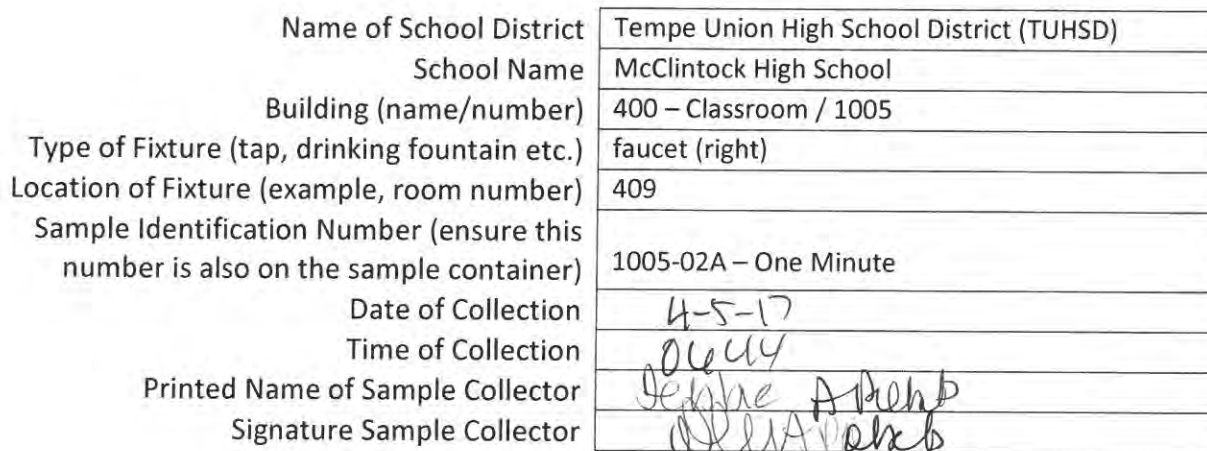 Name of School District Tempe Union High School District (TUHSD)
School Name McClintock High School
Building (name/number) 400 – Classroom / 1005
Type of Fixture (tap, drinking fountain etc.) faucet (right)
Location of Fixture (example, room number) 409
Sample Identification Number (ensure this
number is also on the sample container) 1005-02A – One Minute
Date of Collection 4-5-17
Time of Collection 0644
Printed Name of Sample Collector
Signature Sample Collector